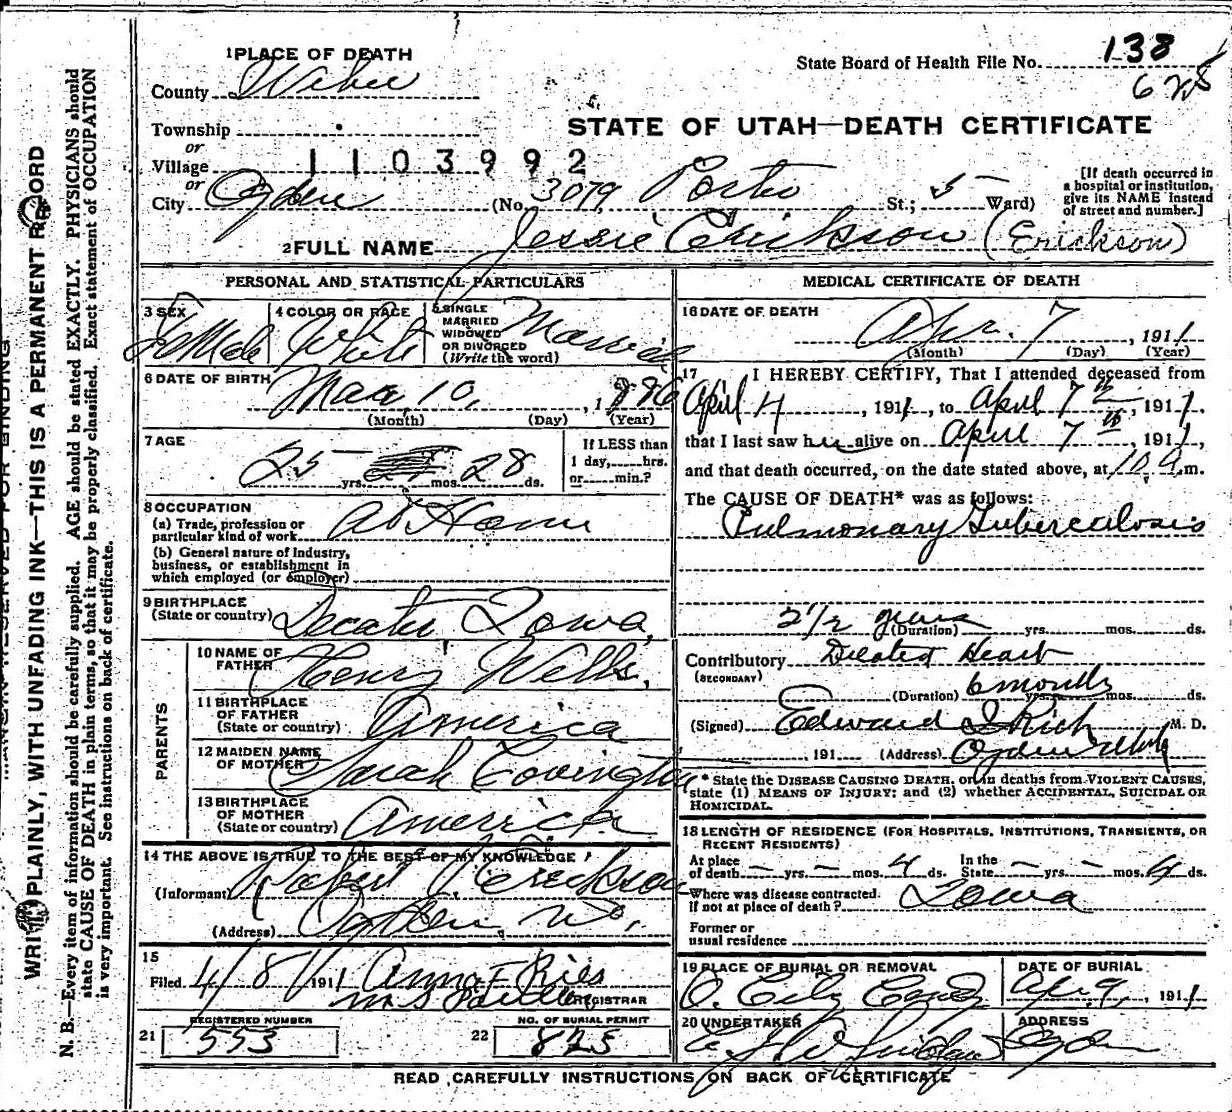 1 PLACE OF DEATH
County Weber
Township
or
Village 1103992
or
City Ogden (No. 3079 Porter St.; 5 Ward)
State Board of Health File No. 138
628
STATE OF UTAH—DEATH CERTIFICATE
[If death occurred in
a hospital or institution,
give its NAME instead
of street and number.]
2 FULL NAME Jessie Erickson (Erickson)
PERSONAL AND STATISTICAL PARTICULARS
3 SEX Female
4 COLOR OR RACE White
5 SINGLE
MARRIED
WIDOWED
OR DIVORCED
(Write the word) Married
6 DATE OF BIRTH Mar 10, 1886
(Month) (Day) (Year)
7 AGE 25 yrs. mos. 28 ds.
If LESS than
1 day, hrs.
or min.?
8 OCCUPATION
(a) Trade, profession or
particular kind of work At Home
(b) General nature of Industry,
business, or establishment in
which employed (or employer)
9 BIRTHPLACE
(State or country) Decatur Iowa.
PARENTS
10 NAME OF
FATHER Henry Wells.
11 BIRTHPLACE
OF FATHER
(State or country) America
12 MAIDEN NAME
OF MOTHER Sarah Covington
13 BIRTHPLACE
OF MOTHER
(State or country) America
14 THE ABOVE IS TRUE TO THE BEST OF MY KNOWLEDGE
(Informant) Robert Erickson
(Address)
15
Filed 4/8/ 1911 Anna F Ries
REGISTRAR
REGISTERED NUMBER
21 553
NO. OF BURIAL PERMIT
22 825
MEDICAL CERTIFICATE OF DEATH
16 DATE OF DEATH
Apr. 7, 1911
(Month) (Day) (Year)
17 I HEREBY CERTIFY, That I attended deceased from
April 4, 1911, to April 7th, 1911,
that I last saw her alive on April 7th, 1911,
and that death occurred, on the date stated above, at 10 a.m.
The CAUSE OF DEATH* was as follows:
Pulmonary Tuberculosis
2 1/2 years
(Duration) yrs. mos. ds.
Contributory Dilated Heart
(SECONDARY)
(Duration) 6 months yrs. mos. ds.
(Signed) Edward I Rich M. D.
, 191 (Address) Ogden Utah
* State the DISEASE CAUSING DEATH, or in deaths from VIOLENT CAUSES,
state (1) MEANS OF INJURY; and (2) whether ACCIDENTAL, SUICIDAL OR
HOMICIDAL.
18 LENGTH OF RESIDENCE (FOR HOSPITALS, INSTITUTIONS, TRANSIENTS, OR
RECENT RESIDENTS)
At place
of death — yrs. — mos. 4 ds. In the
State — yrs. — mos. 4 ds.
Where was disease contracted.
If not at place of death? Iowa
Former or
usual residence
19 PLACE OF BURIAL OR REMOVAL
O. City
DATE OF BURIAL
Apr 9, 1911
20 UNDERTAKER
ADDRESS
Ogden
READ CAREFULLY INSTRUCTIONS ON BACK OF CERTIFICATE
WRITE PLAINLY, WITH UNFADING INK—THIS IS A PERMANENT RECORD
N. B.—Every item of information should be carefully supplied. AGE should be stated EXACTLY. PHYSICIANS should
state CAUSE OF DEATH in plain terms, so that it may be properly classified. Exact statement of OCCUPATION
is very important. See instructions on back of certificate.